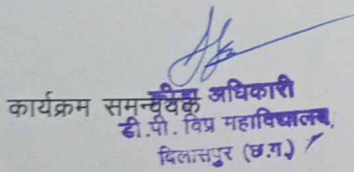 कार्यक्रम समन्वयक
क्रीड़ा अधिकारी
डी.पी. विप्र महाविद्यालय,
बिलासपुर (छ.ग.)